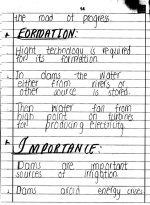 14
the road of progress.
FORMATION:
Hight technology is required
for its formation
In dams the water
either from rivers or
other source is stored.
Then water fall from
high point on turbines
for producing electricity.
IMPORTANCE:
Dams are important
sources of irrigation.
Dams avoid energy crises